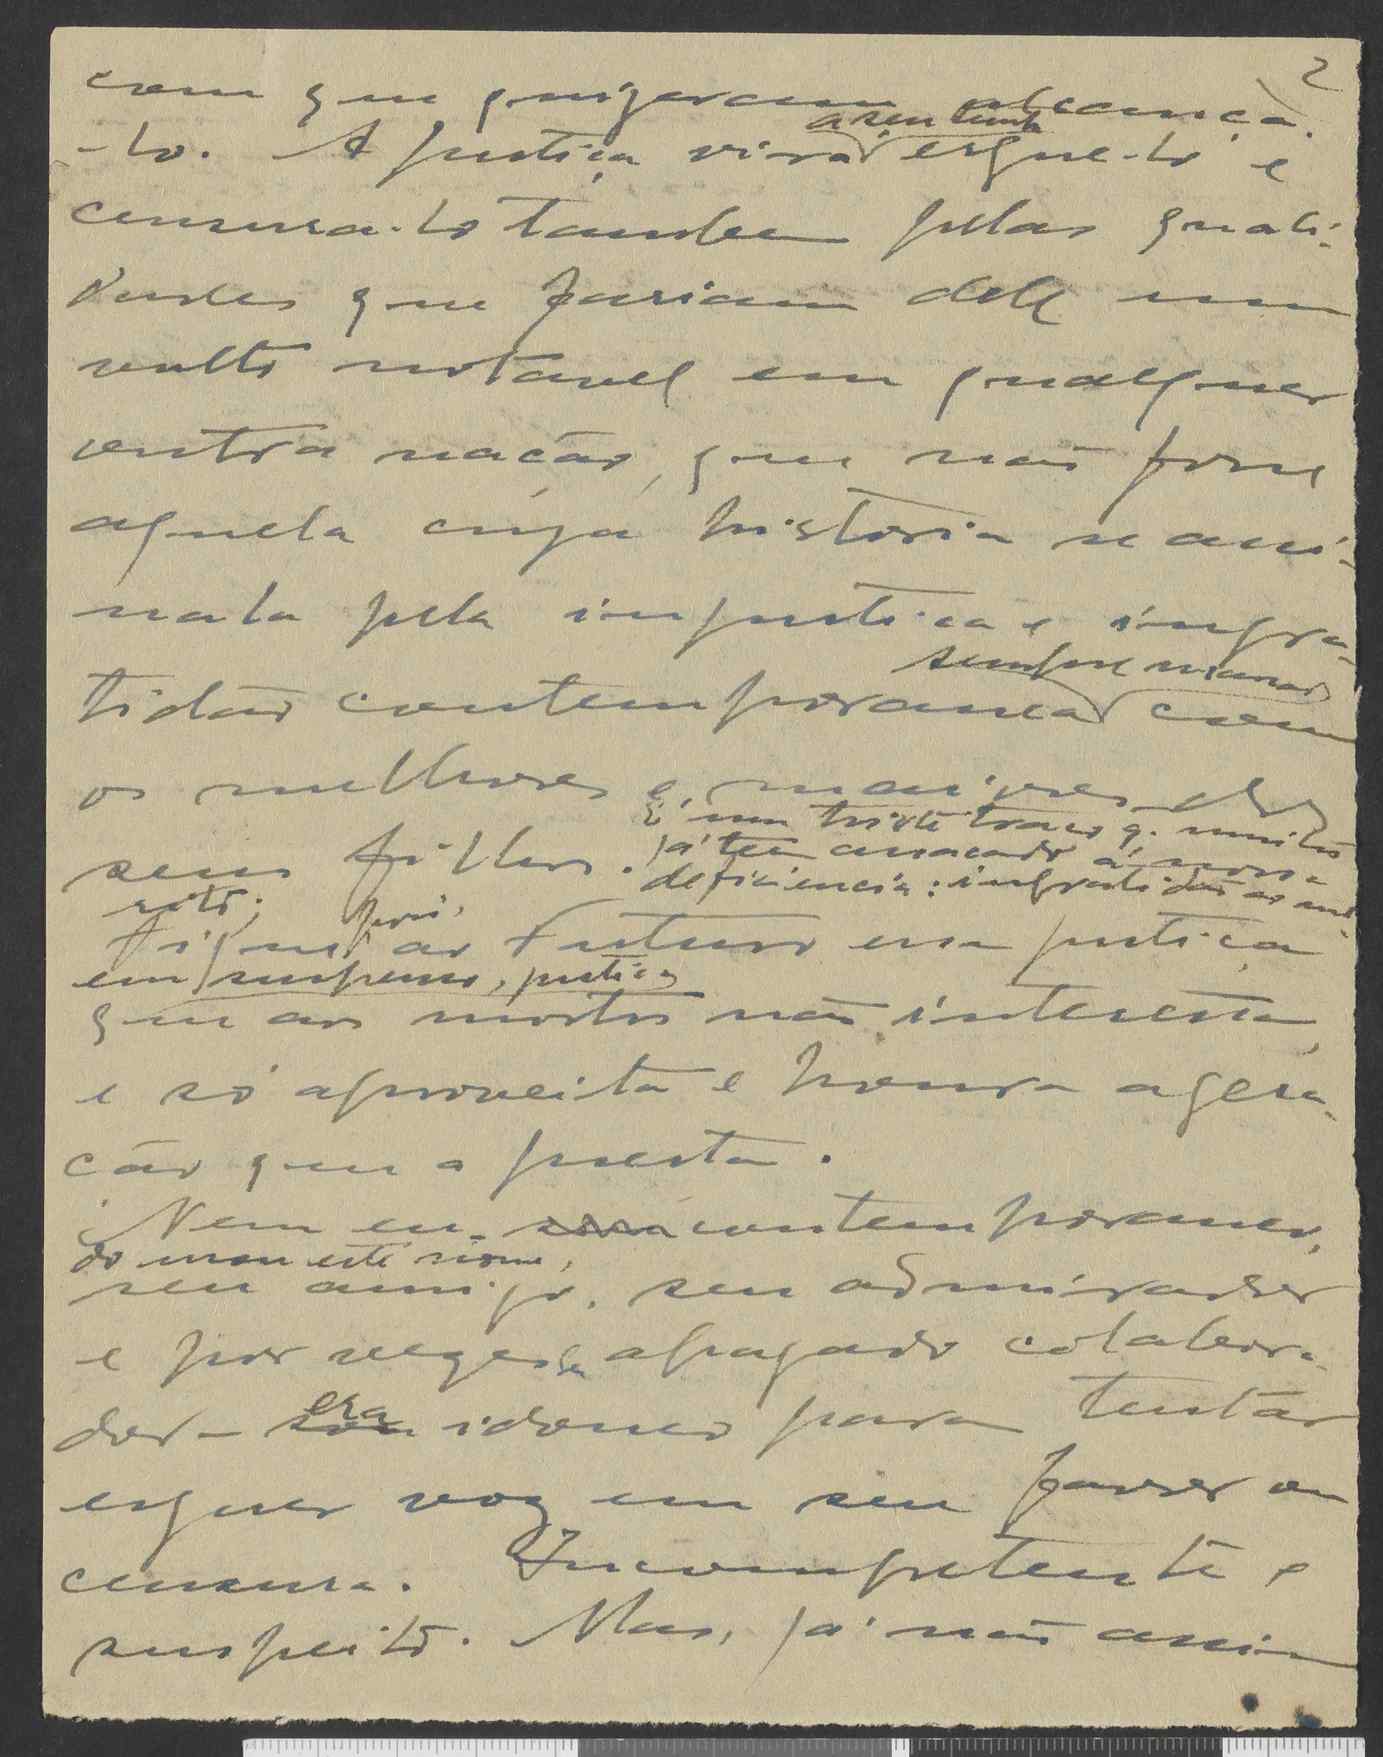 2
com que quizeram alcançá-
-lo. A justiça virá a seu tempo ergue-lo e
censura-lo tambem pelas quali-
dades que fariam delle um
vulto notavel em qualquer
outra nação, que não fosse
aquela cuja historia se assi-
nala pela injustiça e ingra-
tidão contemporanea sempre
com
os melhores e maiores dos
seus filhos.
É um triste traço q. muitos
já tem marcado á nossa
deficiencia: ingratidão ao me-
rito;
Fique, pois, ao futuro essa justiça
em suspenso, justiça
que aos mortos não interessa,
e só aproveita e honra a gera-
ção que a presta.
Nem eu, contemporaneo,
seu amigo, seu admirador
e por vezes apagado colabora-
dor – era idoneo para tentar
erguer voz em seu favor ou
censura. Incompetente e
suspeito. Mas, já não assim